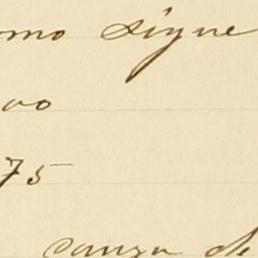 omo sigue
vo
75
causa de